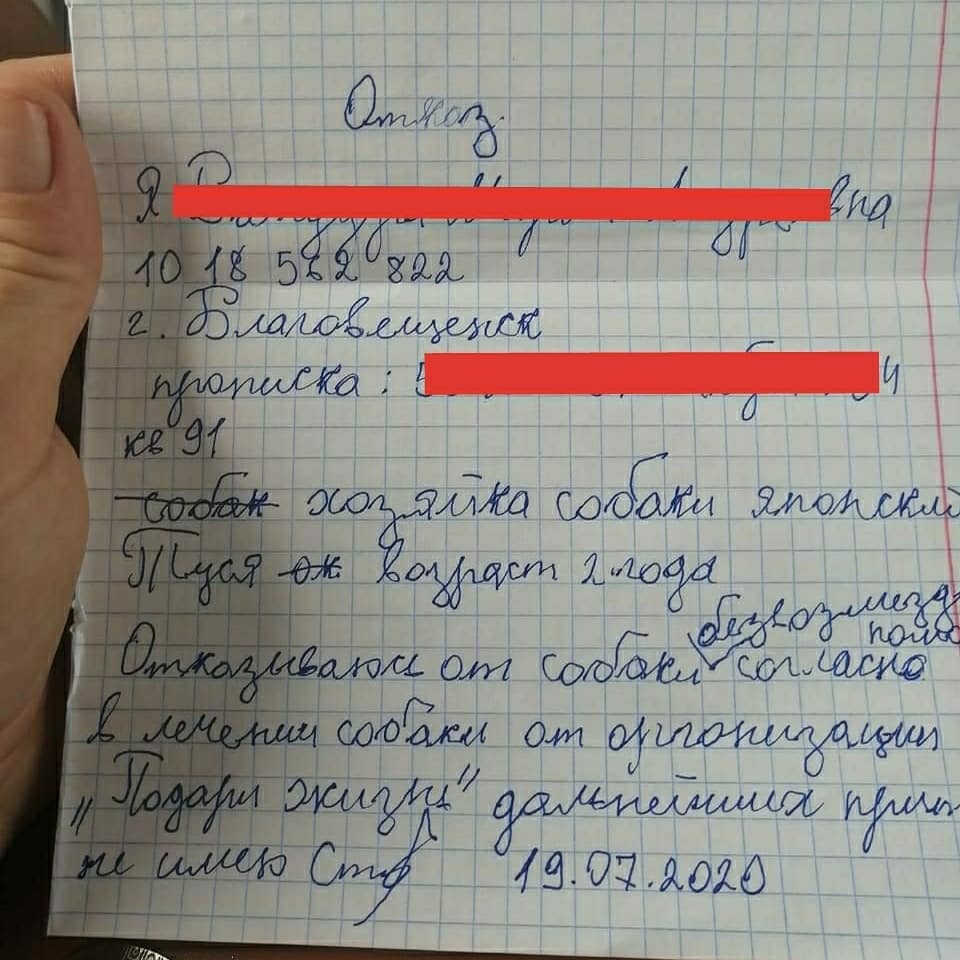 Отказ.
Я вна
10 18 562 822
г. Благовещенск
прописка: 5 4
кв 91
собак хозяйка собаки японский
Туся ок возраст 2 года
безвозмезд
помо
Отказываюсь от собаки согласно
в лечении собаки от организации
„Подари жизнь" дальнейших прит
не имею 19.07.2020